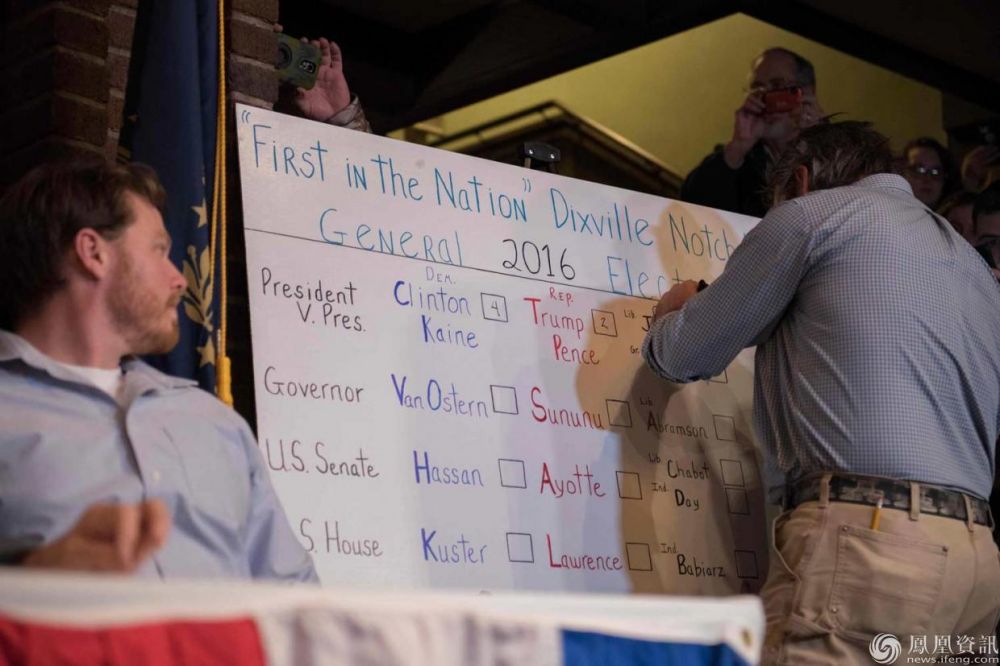 "First in the Nation" Dixville Notch
General 2016 Elect
President V. Pres. Dem. Clinton Kaine 4 Rep. Trump Pence 2 Lib. J Gr.
Governor Van Ostern Sununu Lib Abramson
U.S. Senate Hassan Ayotte Lib Chabot Ind Day
S. House Kuster Lawrence Ind Babiarz
鳳凰資訊
news.ifeng.com